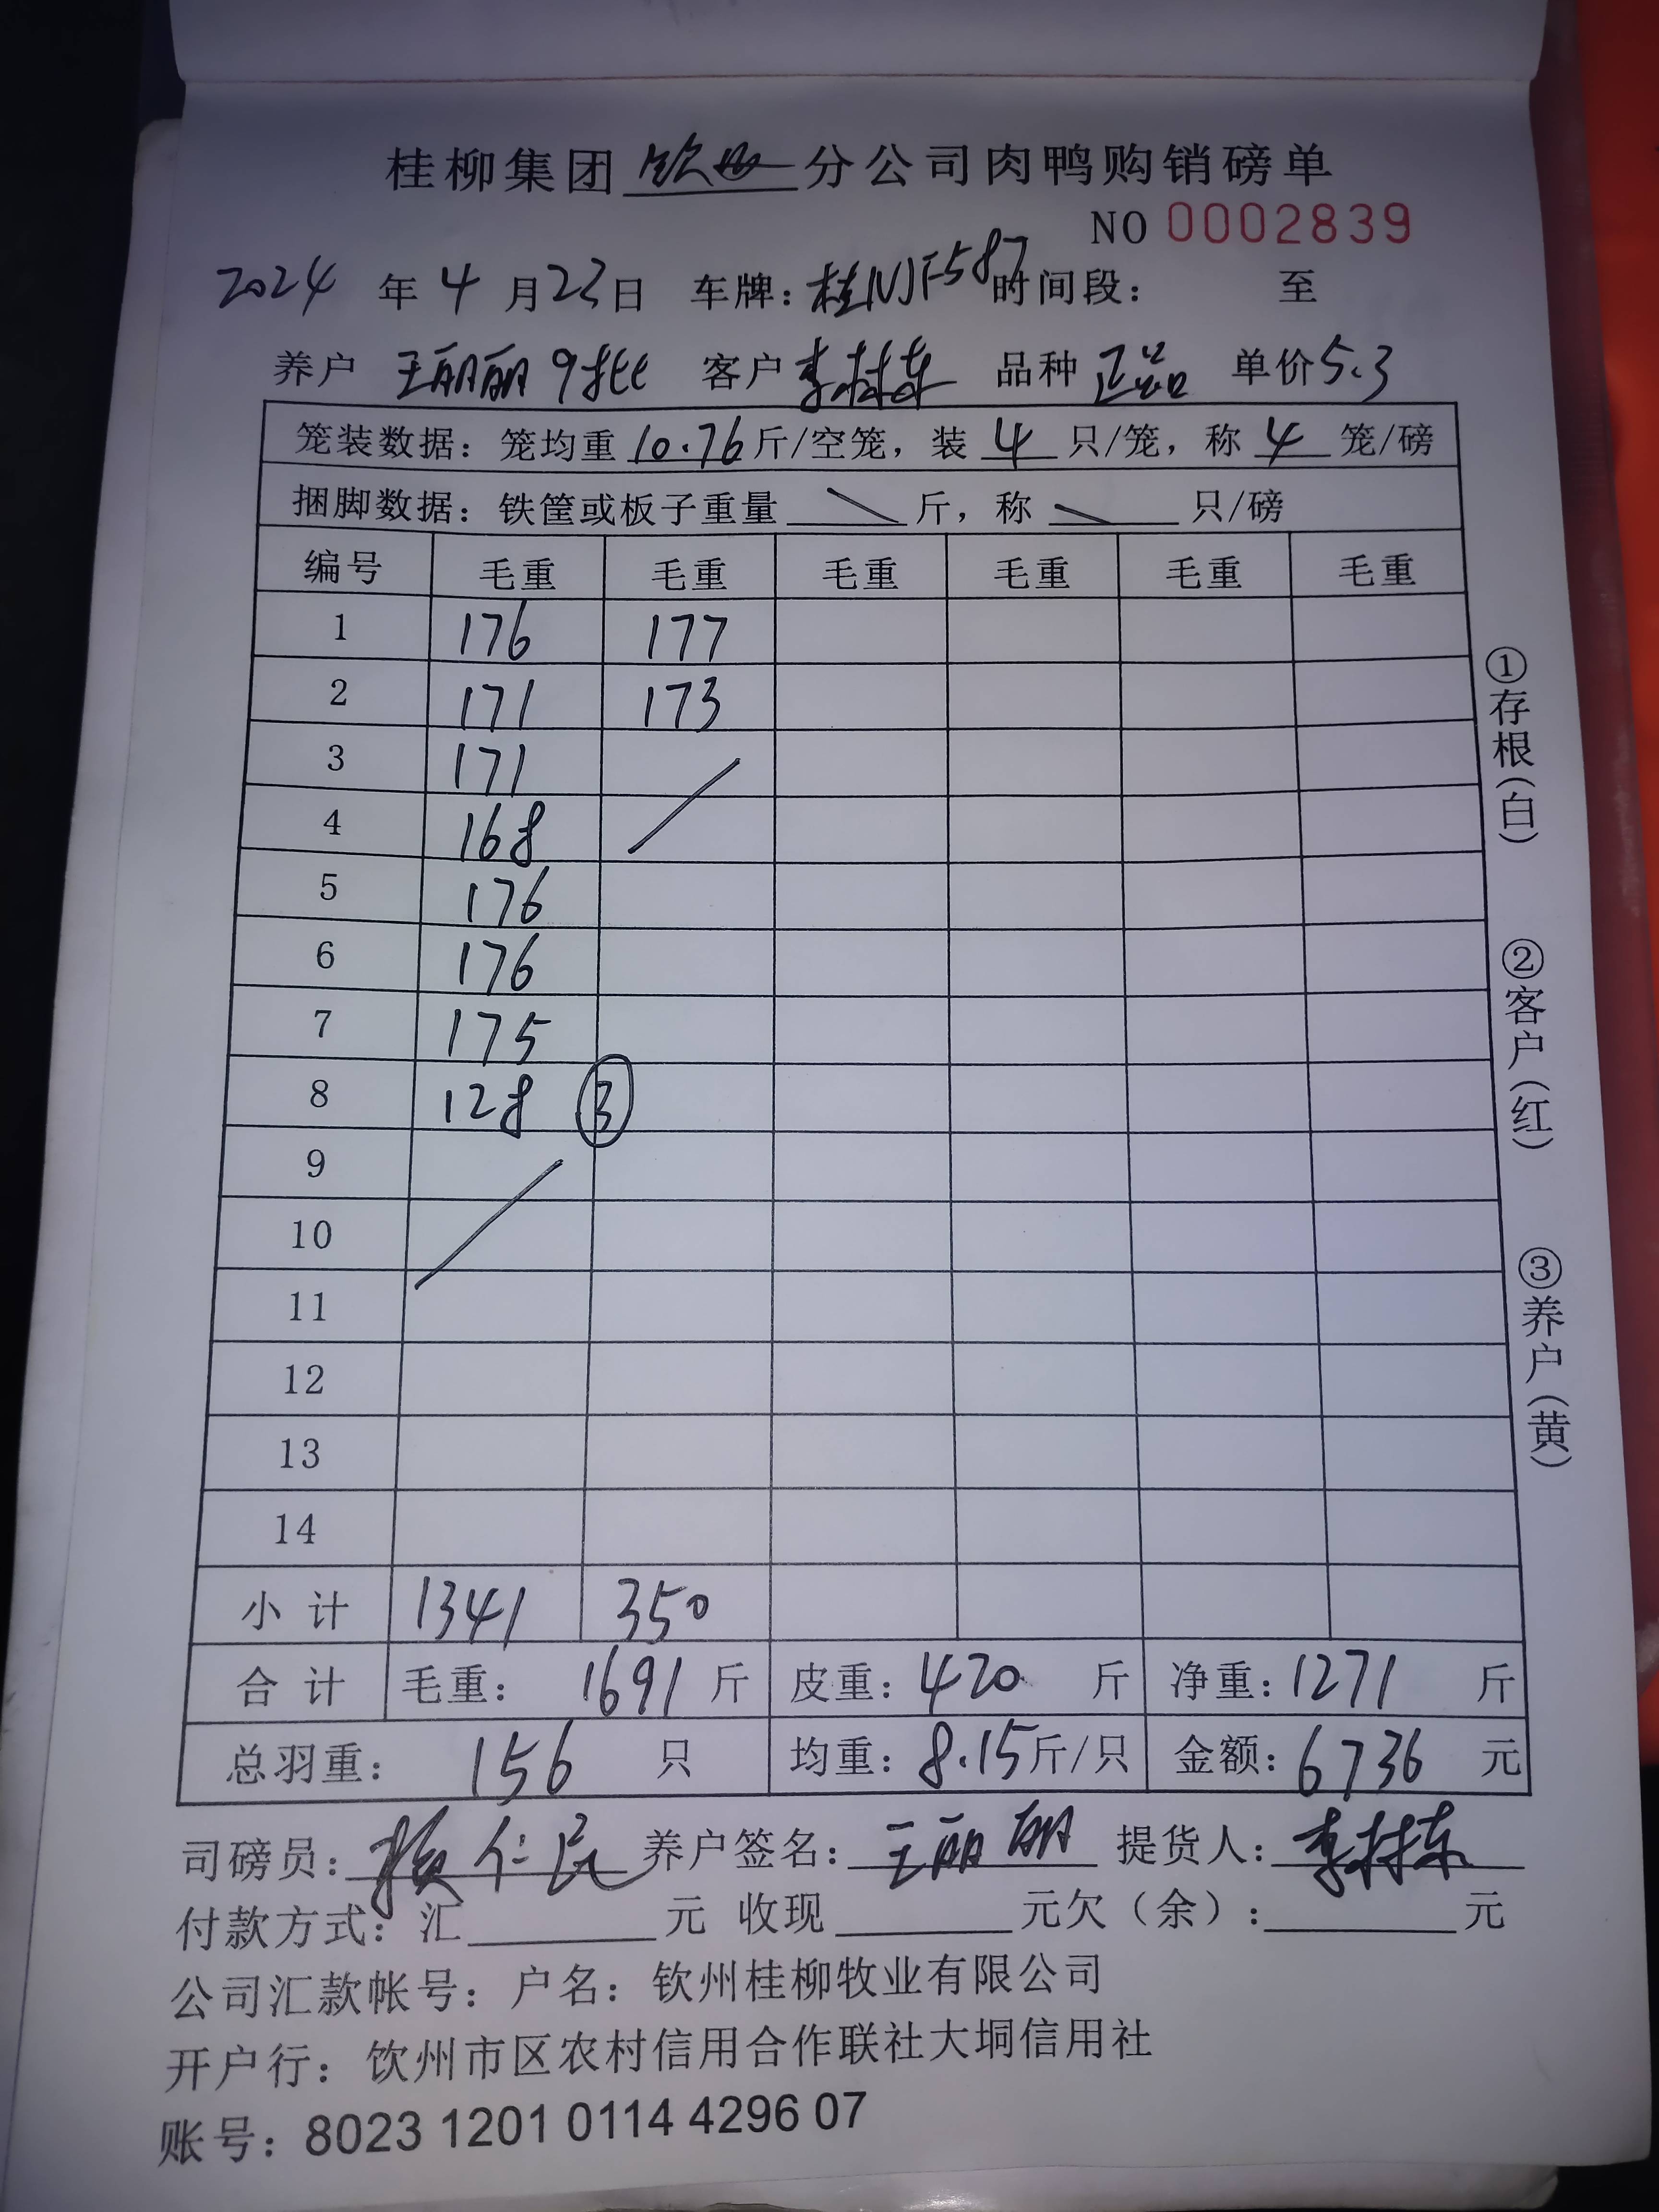 桂柳集团钦州分公司肉鸭购销磅单
NO 0002839
2024 年 4 月 23 日 车牌：桂NJF587 时间段： 至
养户 王丽丽 9批 客户 李村东 品种 正品 单价 5.3
笼装数据：笼均重 10.76 斤/空笼，装 4 只/笼，称 4 笼/磅
捆脚数据：铁筐或板子重量 \ 斤，称 \ 只/磅
编号 毛重 毛重 毛重 毛重 毛重 毛重
1 176 177
2 171 173
3 171
4 168
5 176
6 176
7 175
8 128 ③
9
10
11
12
13
14
小计 1341 350
合计 毛重：1691 斤 皮重：420 斤 净重：1271 斤
总羽重：156 只 均重：8.15 斤/只 金额：6736 元
司磅员：仁民 养户签名：王丽丽 提货人：李村东
付款方式：汇 元 收现 元欠（余）： 元
公司汇款帐号：户名：钦州桂柳牧业有限公司
开户行：饮州市区农村信用合作联社大垌信用社
账号：8023 1201 0114 4296 07
①存根（白）
②客户（红）
③养户（黄）